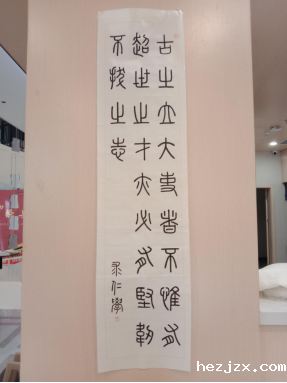 古之立大事者不惟有
超世之才亦必有坚韧
不拔之志
永仁学
hezjzx.com